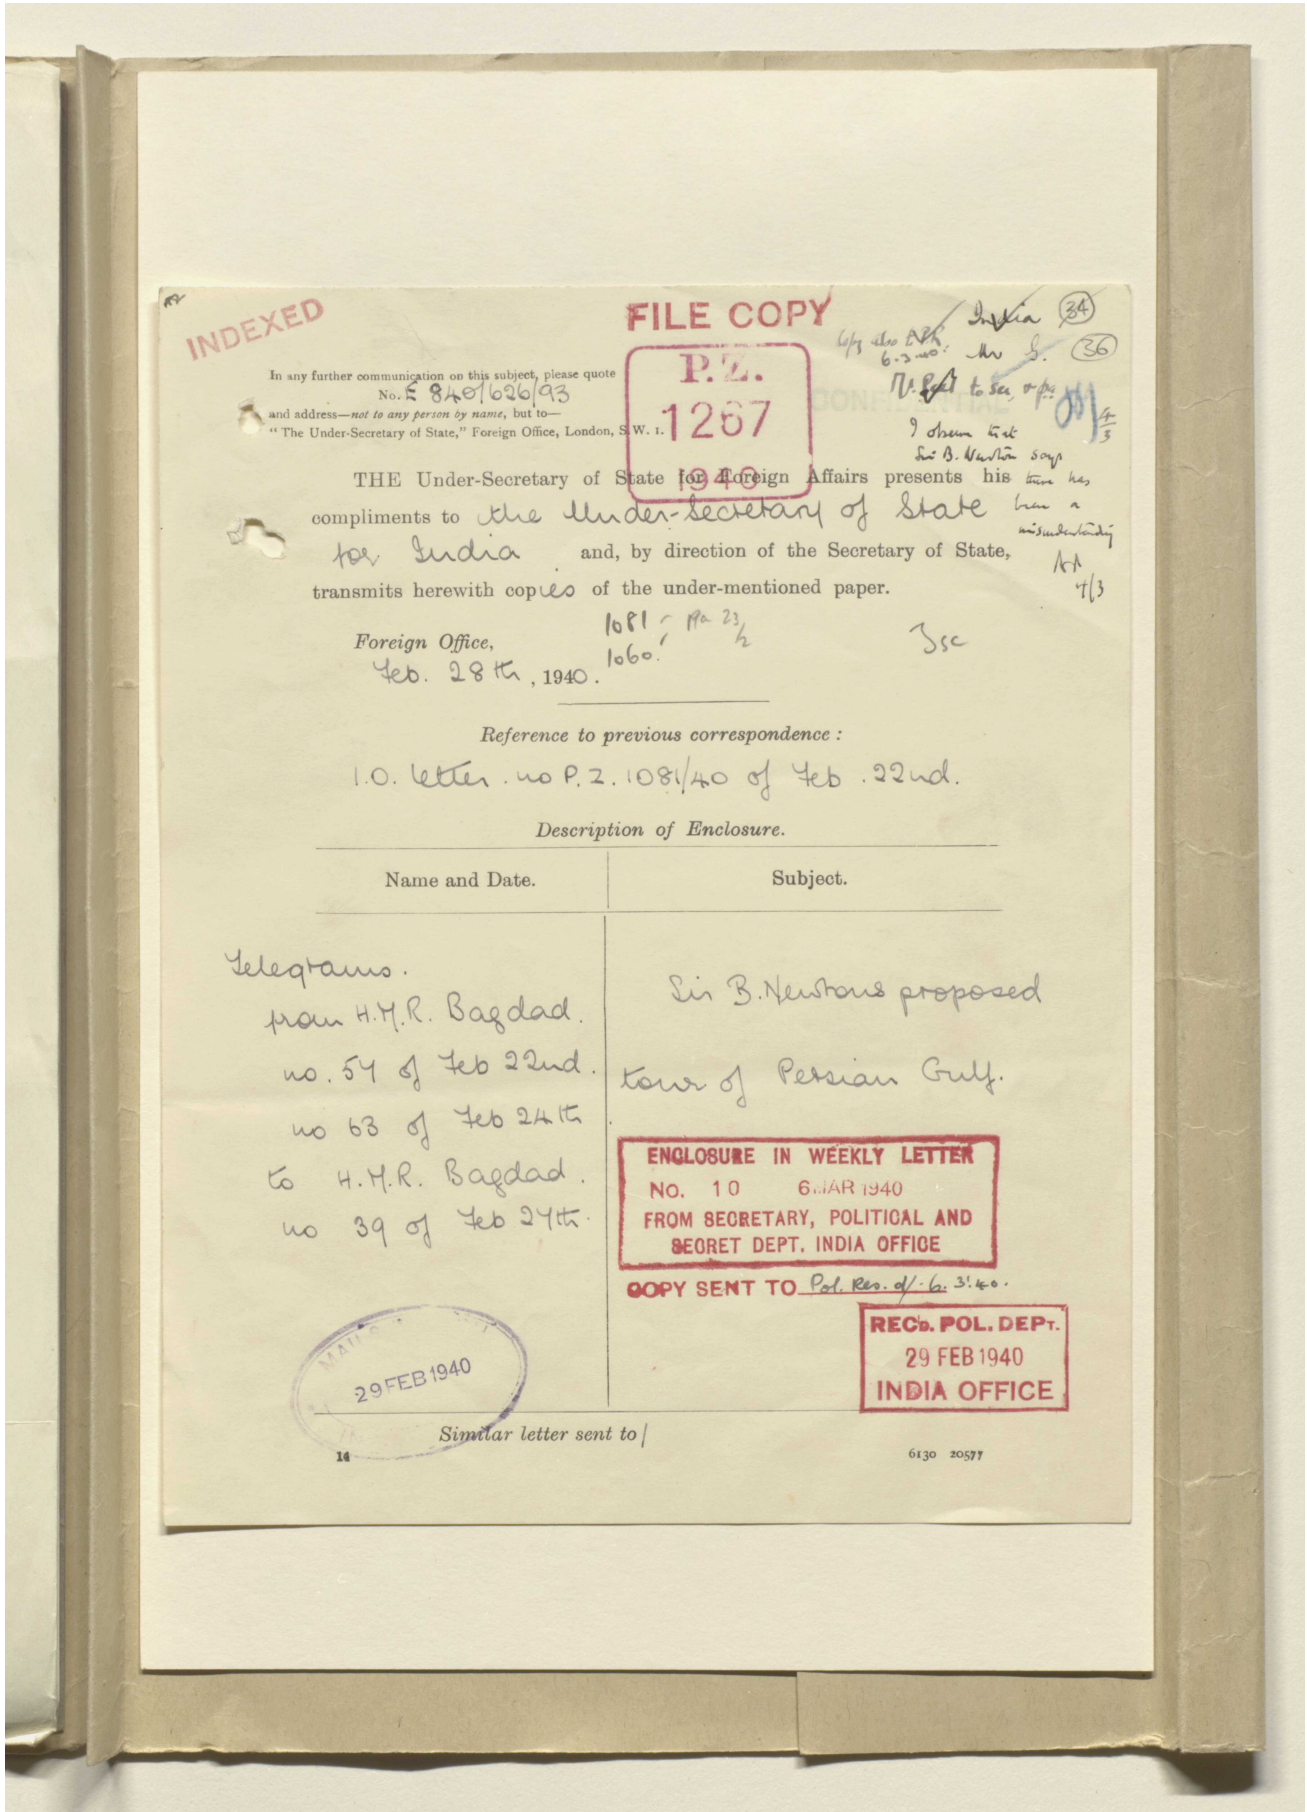 INDEXED
FILE COPY
India 34
Copy also
6.3.40.
Mr G. 36
P.Z.
1267
1940
CONFIDENTIAL
to see, & pa
4/3
In any further communication on this subject, please quote
No. E 840/626/93
and address—not to any person by name, but to—
"The Under-Secretary of State," Foreign Office, London, S.W. 1.
I observe that
Sir B. Newton says
there has
been a
misunderstanding
4/3
THE Under-Secretary of State for Foreign Affairs presents his
compliments to the Under-Secretary of State
for India and, by direction of the Secretary of State,
transmits herewith copies of the under-mentioned paper.
1081 - pa 23/2
1060!
Foreign Office,
Feb. 28th, 1940.
Reference to previous correspondence:
I.O. letter. no P.Z. 1081/40 of Feb. 22nd.
Description of Enclosure.
Name and Date. Subject.
Telegrams.
from H.M.R. Bagdad.
no. 57 of Feb 22nd.
no 63 of Feb 24th
to H.M.R. Bagdad.
no 39 of Feb 27th.
Sir B. Newtons proposed
tour of Persian Gulf.
ENCLOSURE IN WEEKLY LETTER
NO. 10 6 MAR 1940
FROM SECRETARY, POLITICAL AND
SECRET DEPT. INDIA OFFICE
COPY SENT TO Pol. Res. d/- 6.3.40.
RECD. POL. DEPT.
29 FEB 1940
INDIA OFFICE
29 FEB 1940
Similar letter sent to
14
6130 20577